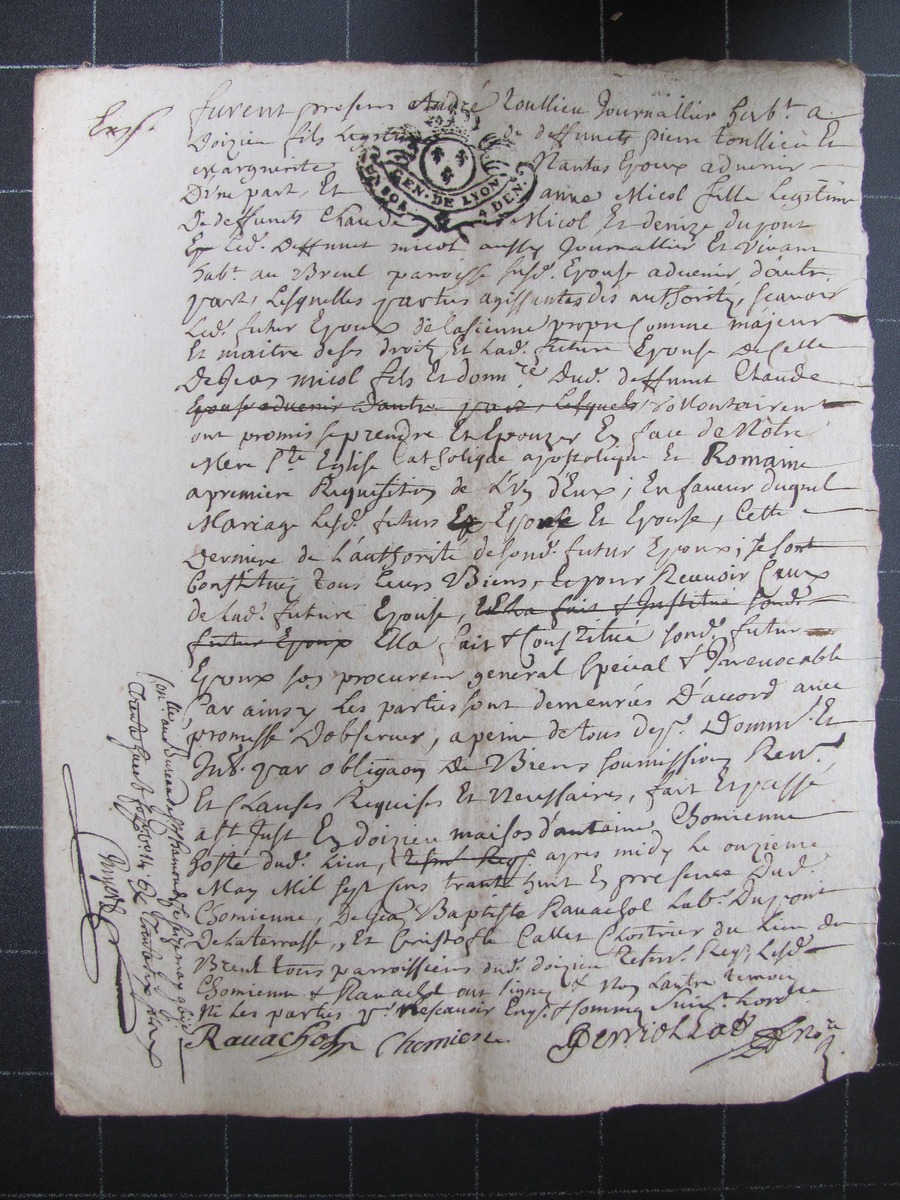 Exp.
furent presens André Toullieu Journallier habt. a
Doizieu fils Legitime de deffunts pierre Toullieu Et
Marguerite Nantas Epoux aduenir
D'Vne part, Et anne Micol fille Legitime
De deffunts Claude Micol Et denize dupont
Led. Deffunt micol aussy Journallier Et Vivant
habt. au Breul parroisse susd. Epouse aduenir d'autre
part, Lesquelles parties agissantes des authorités, scauoir
Led. futur Epoux de la sienne propre Comme majeur
Et maitre de ses droits Et Lad. future Epouse de Celle
De Jean micol fils Et donn.re dud. deffunt Claude
Epouse aduenir d'autre part, Lesquels, Vollontairemt
ont promis se prendre Et Epouzer En face de Notre
Mere Ste Eglise Catholique apostolique Et Romaine
a premiere Requisition de L'Vn D'Eux ; En faueur duquel
Mariage Lesd. futurs Epoux Et Epouse, Cette
Derniere de L'authorité de sond. futur Epoux ; se sont
Constitués tous leurs Biens, Et pour Receuoir Ceux
de Lad. future Epouse, Elle a fait & Institué sond.
futur Epoux Ella fait & Constitué sond. futur
Epoux son procureur general special & Irreuocable
Car ainsy les parties sont demeurées D'accord auec
promesse D'obseruer, a peine de tous dep. Domm. Et
Int. par obligaon De Biens soumission Ren.
Et Clauses Requises Et Necessaires, fait Et passé
a St Just En doizieu maison d'antoine Chomienne
hoste dud. Lieu, apres midy Le onzieme
May Mil sept sens trante huit En presence Dud.
Chomienne, De Jean Baptiste Rauachol Lab. Dupont
De La terrasse, Et Cristofle Callet Clostrier du Lieu du
Breul tous parroissiens dud. doizieu Lesd.
Chomienne & Rauachol ont signé & Non L'autre temoin
Ni Les parties pr. Ne scauoir Enq. & sommés suiu. L'ordce
Rauachol Chomienne Perriollat
Con.llé au Bureau de St Chamond le seize may